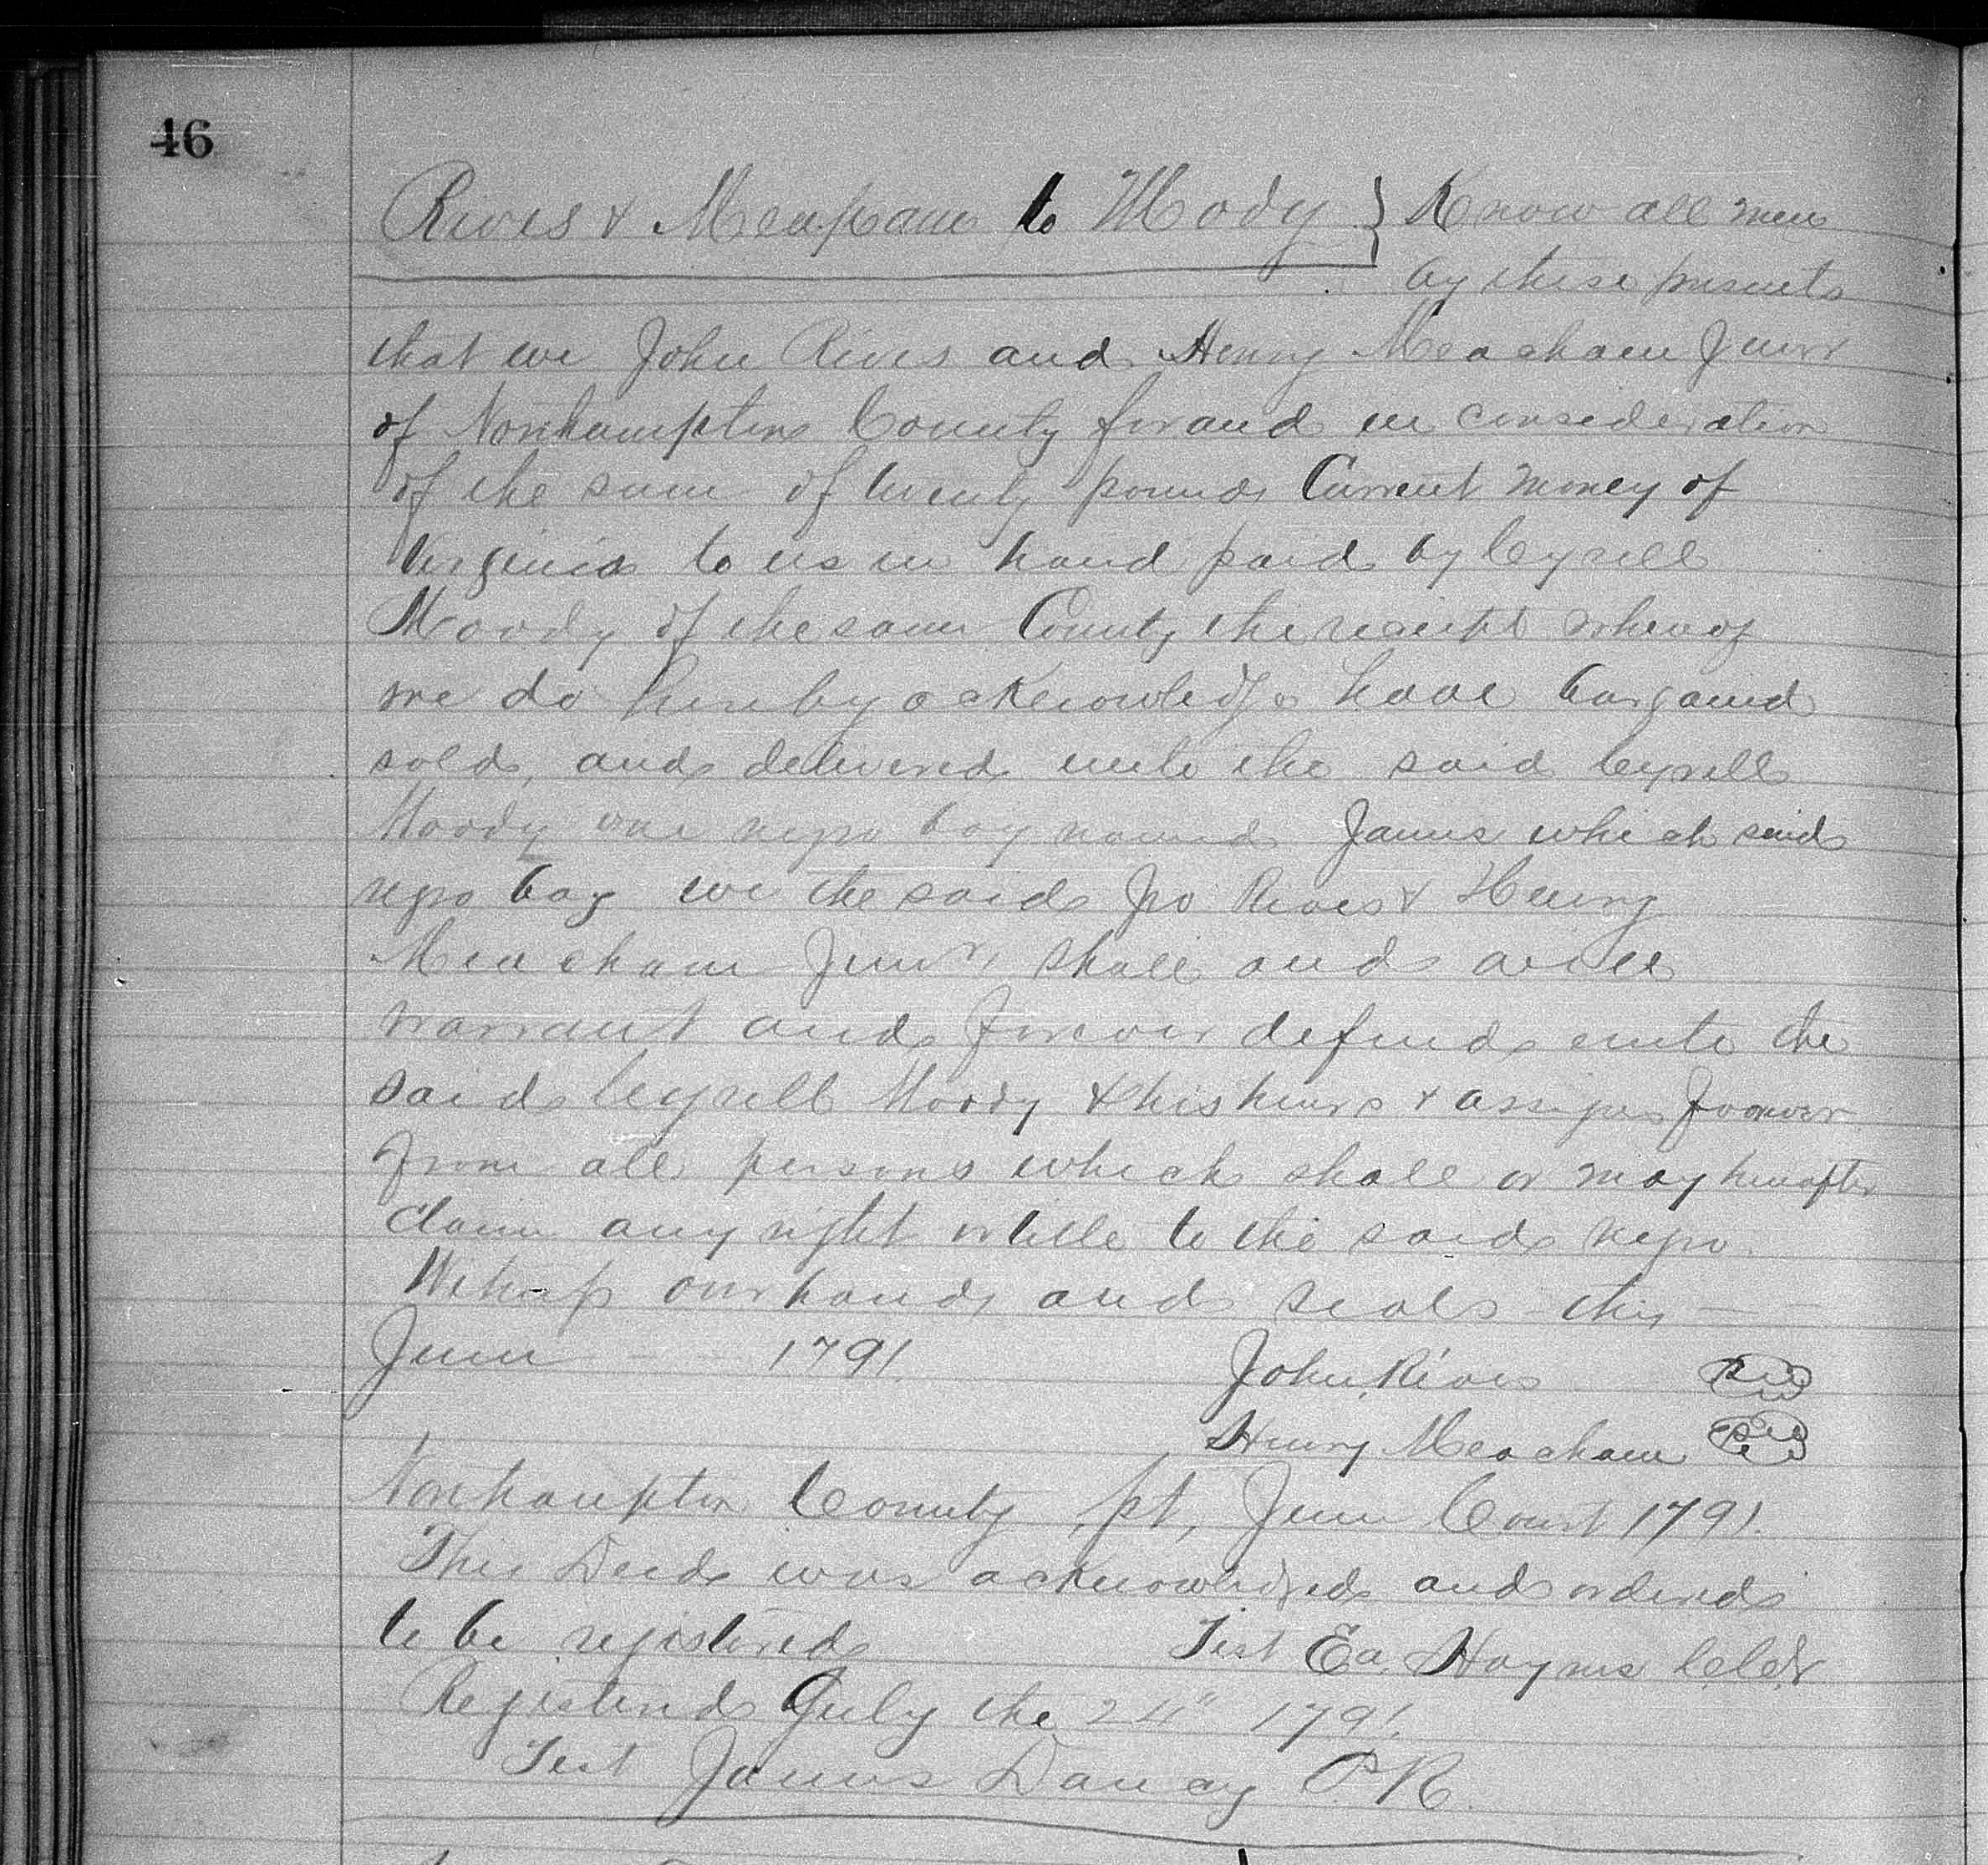 46
Rives & Meapam to Mody } Know all men
by these presents
that we John Rives and Henry Meacham Junr
of Northampton County for and in consideration
of the sum of twenty pounds Current money of
Virginia to us in hand paid by Cyrell
Moody of the same County the receipt whereof
we do hereby acknowledge have bargaind
sold, and delivered unto the said Cyrell
Moody one negro boy named James which said
negro boy we the said Jno Rives & Henry
Meacham Junr, shall and will
warrant and forever defend unto the
said Cyrell Moody & his heirs & assigns forever
from all persons which shall or may hereafter
claim any right or title to the said negro.
Witness our hands and seals this — —
June — — 1791.
John Rives
Henry Meacham
Northampton County, pt, June Court 1791.
This Deed was acknowledged and ordered
to be registered Test Ea. Haynes C.Clk
Registered July the 24" 1791.
Test James Dancy P.R.